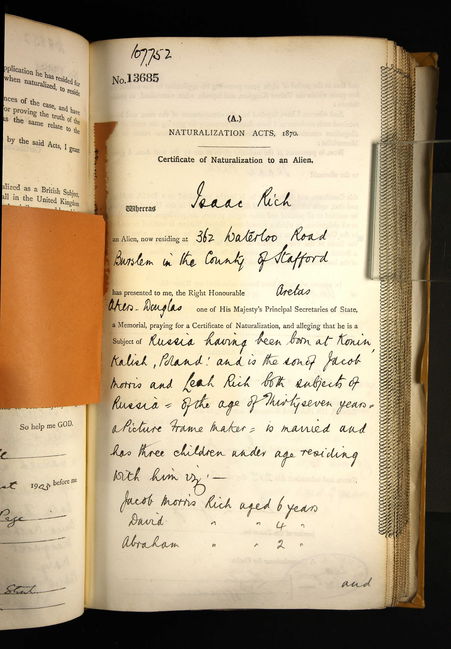 pplication he has resided for
when naturalized, to reside
nces of the case, and have
or proving the truth of the
as the same relate to the
by the said Acts, I grant
alized as a British Subject,
all in the United Kingdom
So help me GOD.
1905 before me
107752
No. 13685
(A.)
NATURALIZATION ACTS, 1870.
Certificate of Naturalization to an Alien.
Whereas Isaac Rich
an Alien, now residing at 362 Waterloo Road
Burslem in the County of Stafford
has presented to me, the Right Honourable Aretas
Akers-Douglas one of His Majesty's Principal Secretaries of State,
a Memorial, praying for a Certificate of Naturalization, and alleging that he is a
Subject of Russia having been born at Konin,
Kalish, Poland: and is the son of Jacob
Morris and Leah Rich both subjects of
Russia = of the age of Thirtyseven years =
a Picture Frame Maker = is married and
has three children under age residing
with him viz:—
Jacob Morris Rich aged 6 years
David " " 4 "
Abraham " " 2 "
and